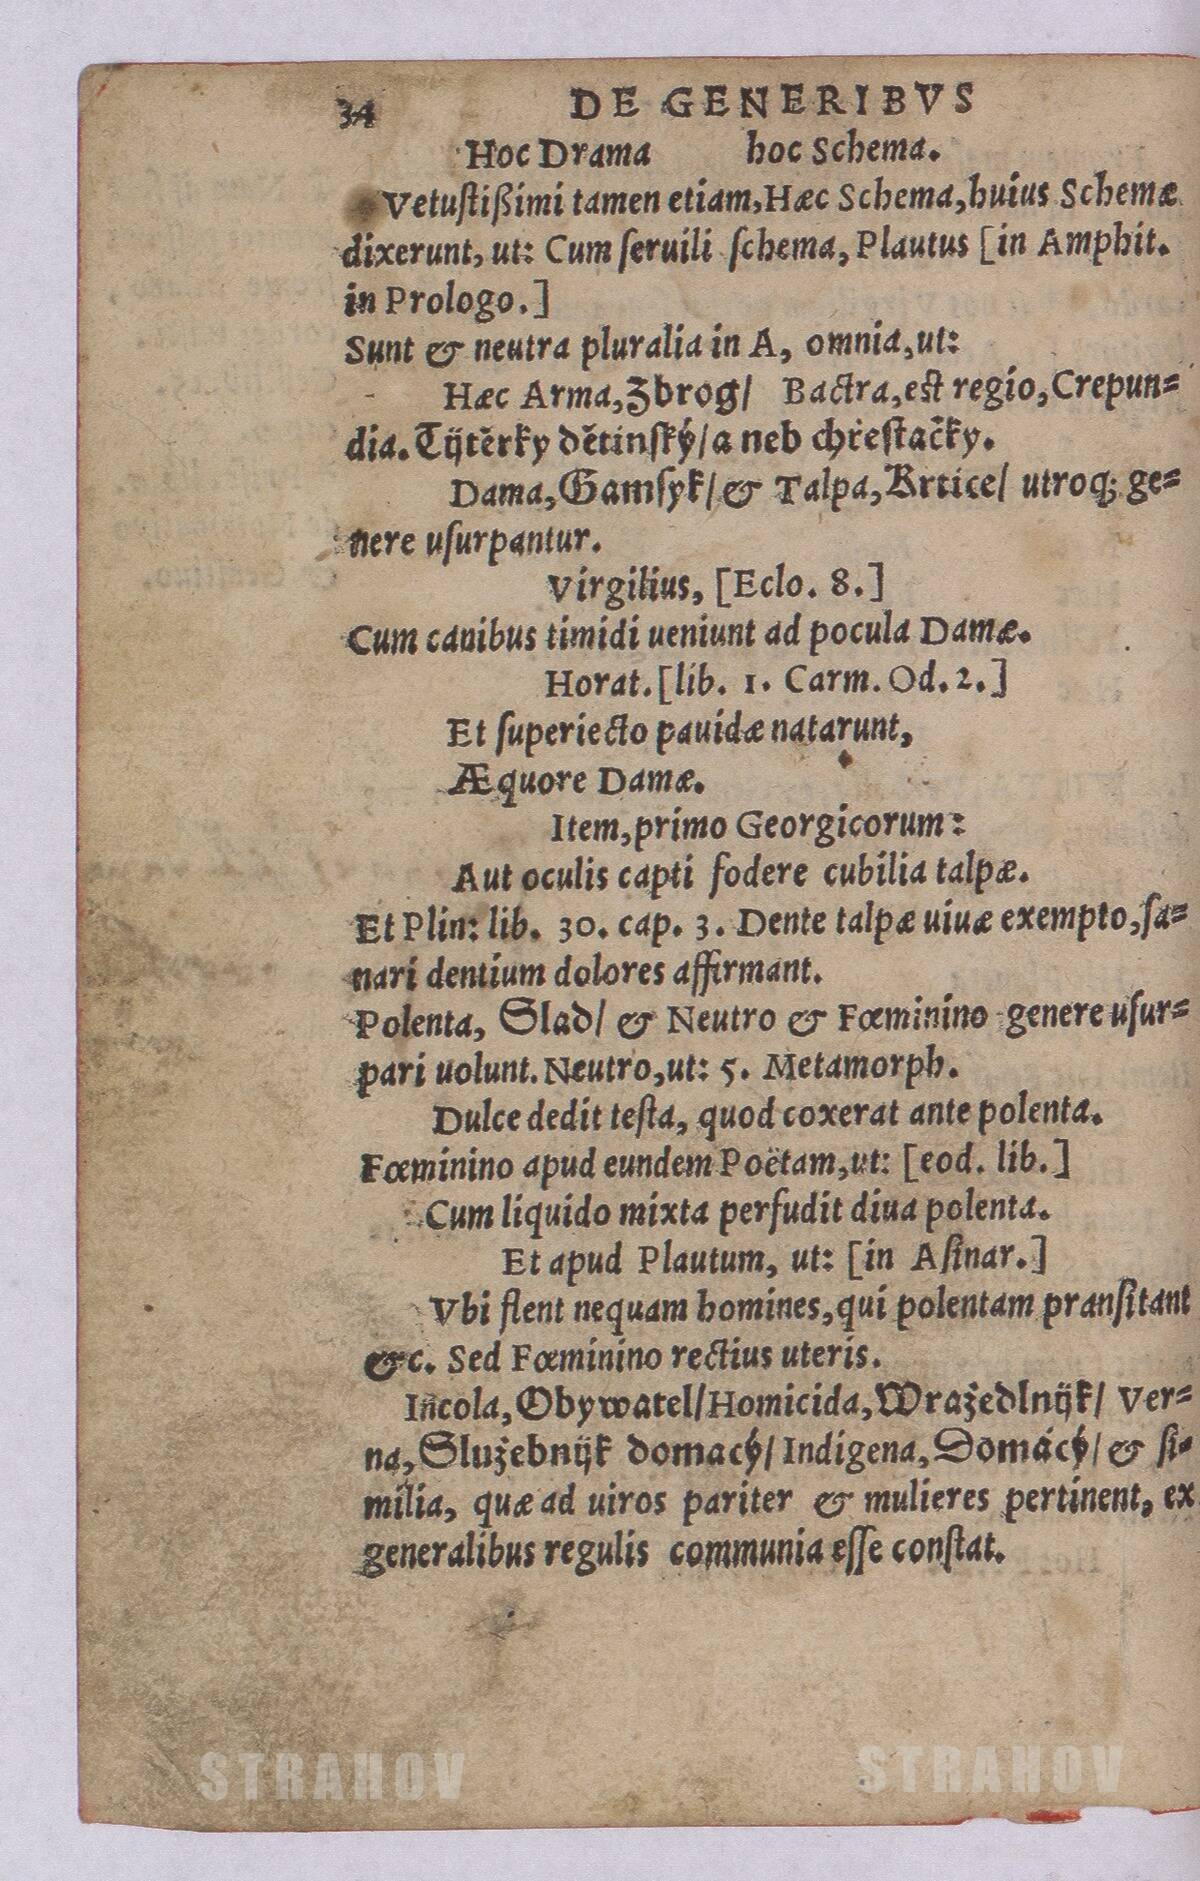 34 DE GENERIBVS
Hoc Drama hoc Schema.
Vetustißimi tamen etiam, Hæc Schema, huius Schemæ
dixerunt, ut: Cum seruili schema, Plautus [in Amphit.
in Prologo.]
Sunt & neutra pluralia in A, omnia, ut:
Hæc Arma, Zbrog/ Bactra, est regio, Crepun=
dia. Tÿtěrky dětinský/ a neb chřestačky.
Dama, Gamsyk/ & Talpa, Krtice/ utroq; ge=
nere usurpantur.
Virgilius, [Eclo. 8.]
Cum canibus timidi ueniunt ad pocula Damæ.
Horat. [lib. 1. Carm. Od. 2.]
Et superiecto pauidæ natarunt,
Æquore Damæ.
Item, primo Georgicorum:
Aut oculis capti fodere cubilia talpæ.
Et Plin: lib. 30. cap. 3. Dente talpæ uiuæ exempto, sa=
nari dentium dolores affirmant.
Polenta, Slad/ & Neutro & Fœminino genere usur=
pari uolunt. Neutro, ut: 5. Metamorph.
Dulce dedit testa, quod coxerat ante polenta.
Fœminino apud eundem Poëtam, ut: [eod. lib.]
Cum liquido mixta perfudit diua polenta.
Et apud Plautum, ut: [in Asinar.]
Vbi flent nequam homines, qui polentam pransitant
&c. Sed Fœminino rectius uteris.
Incola, Obywatel/ Homicida, Wražedlnÿk/ Ver=
na, Služebnÿk domacý/ Indigena, Domácý/ & si=
milia, quæ ad uiros pariter & mulieres pertinent, ex
generalibus regulis communia esse constat.
STRAHOV STRAHOV